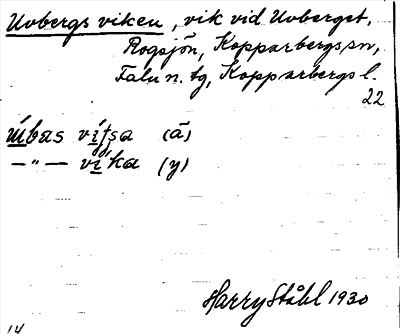 Uvbergsviken, vik vid Uvberget,
Rogsjön, Kopparbergs sn,
Falu n. tg, Kopparbergs l.
22
úbas (ä)
—"— víka (y)
Harry Ståhl 1930
14